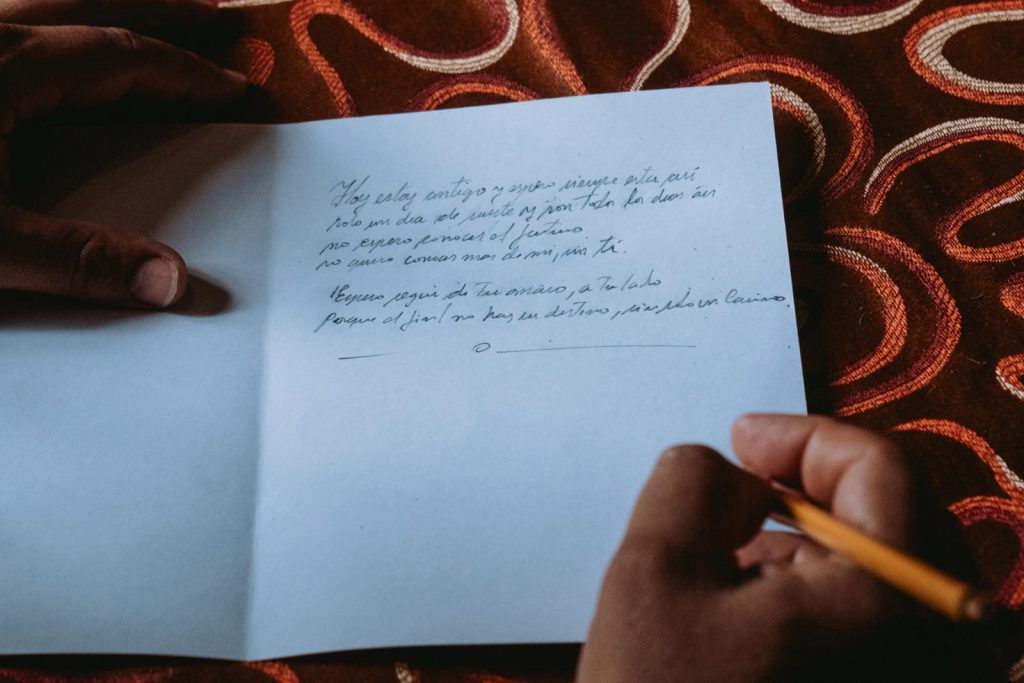 Hoy estoy contigo y espero siempre estar así
solo un día de suerte y por todos los días así
no espero conocer el futuro
no quiero conocer mas de mi, sin ti.
Espero seguir de tu mano, a tu lado
porque al final no hay un destino, sin un camino.